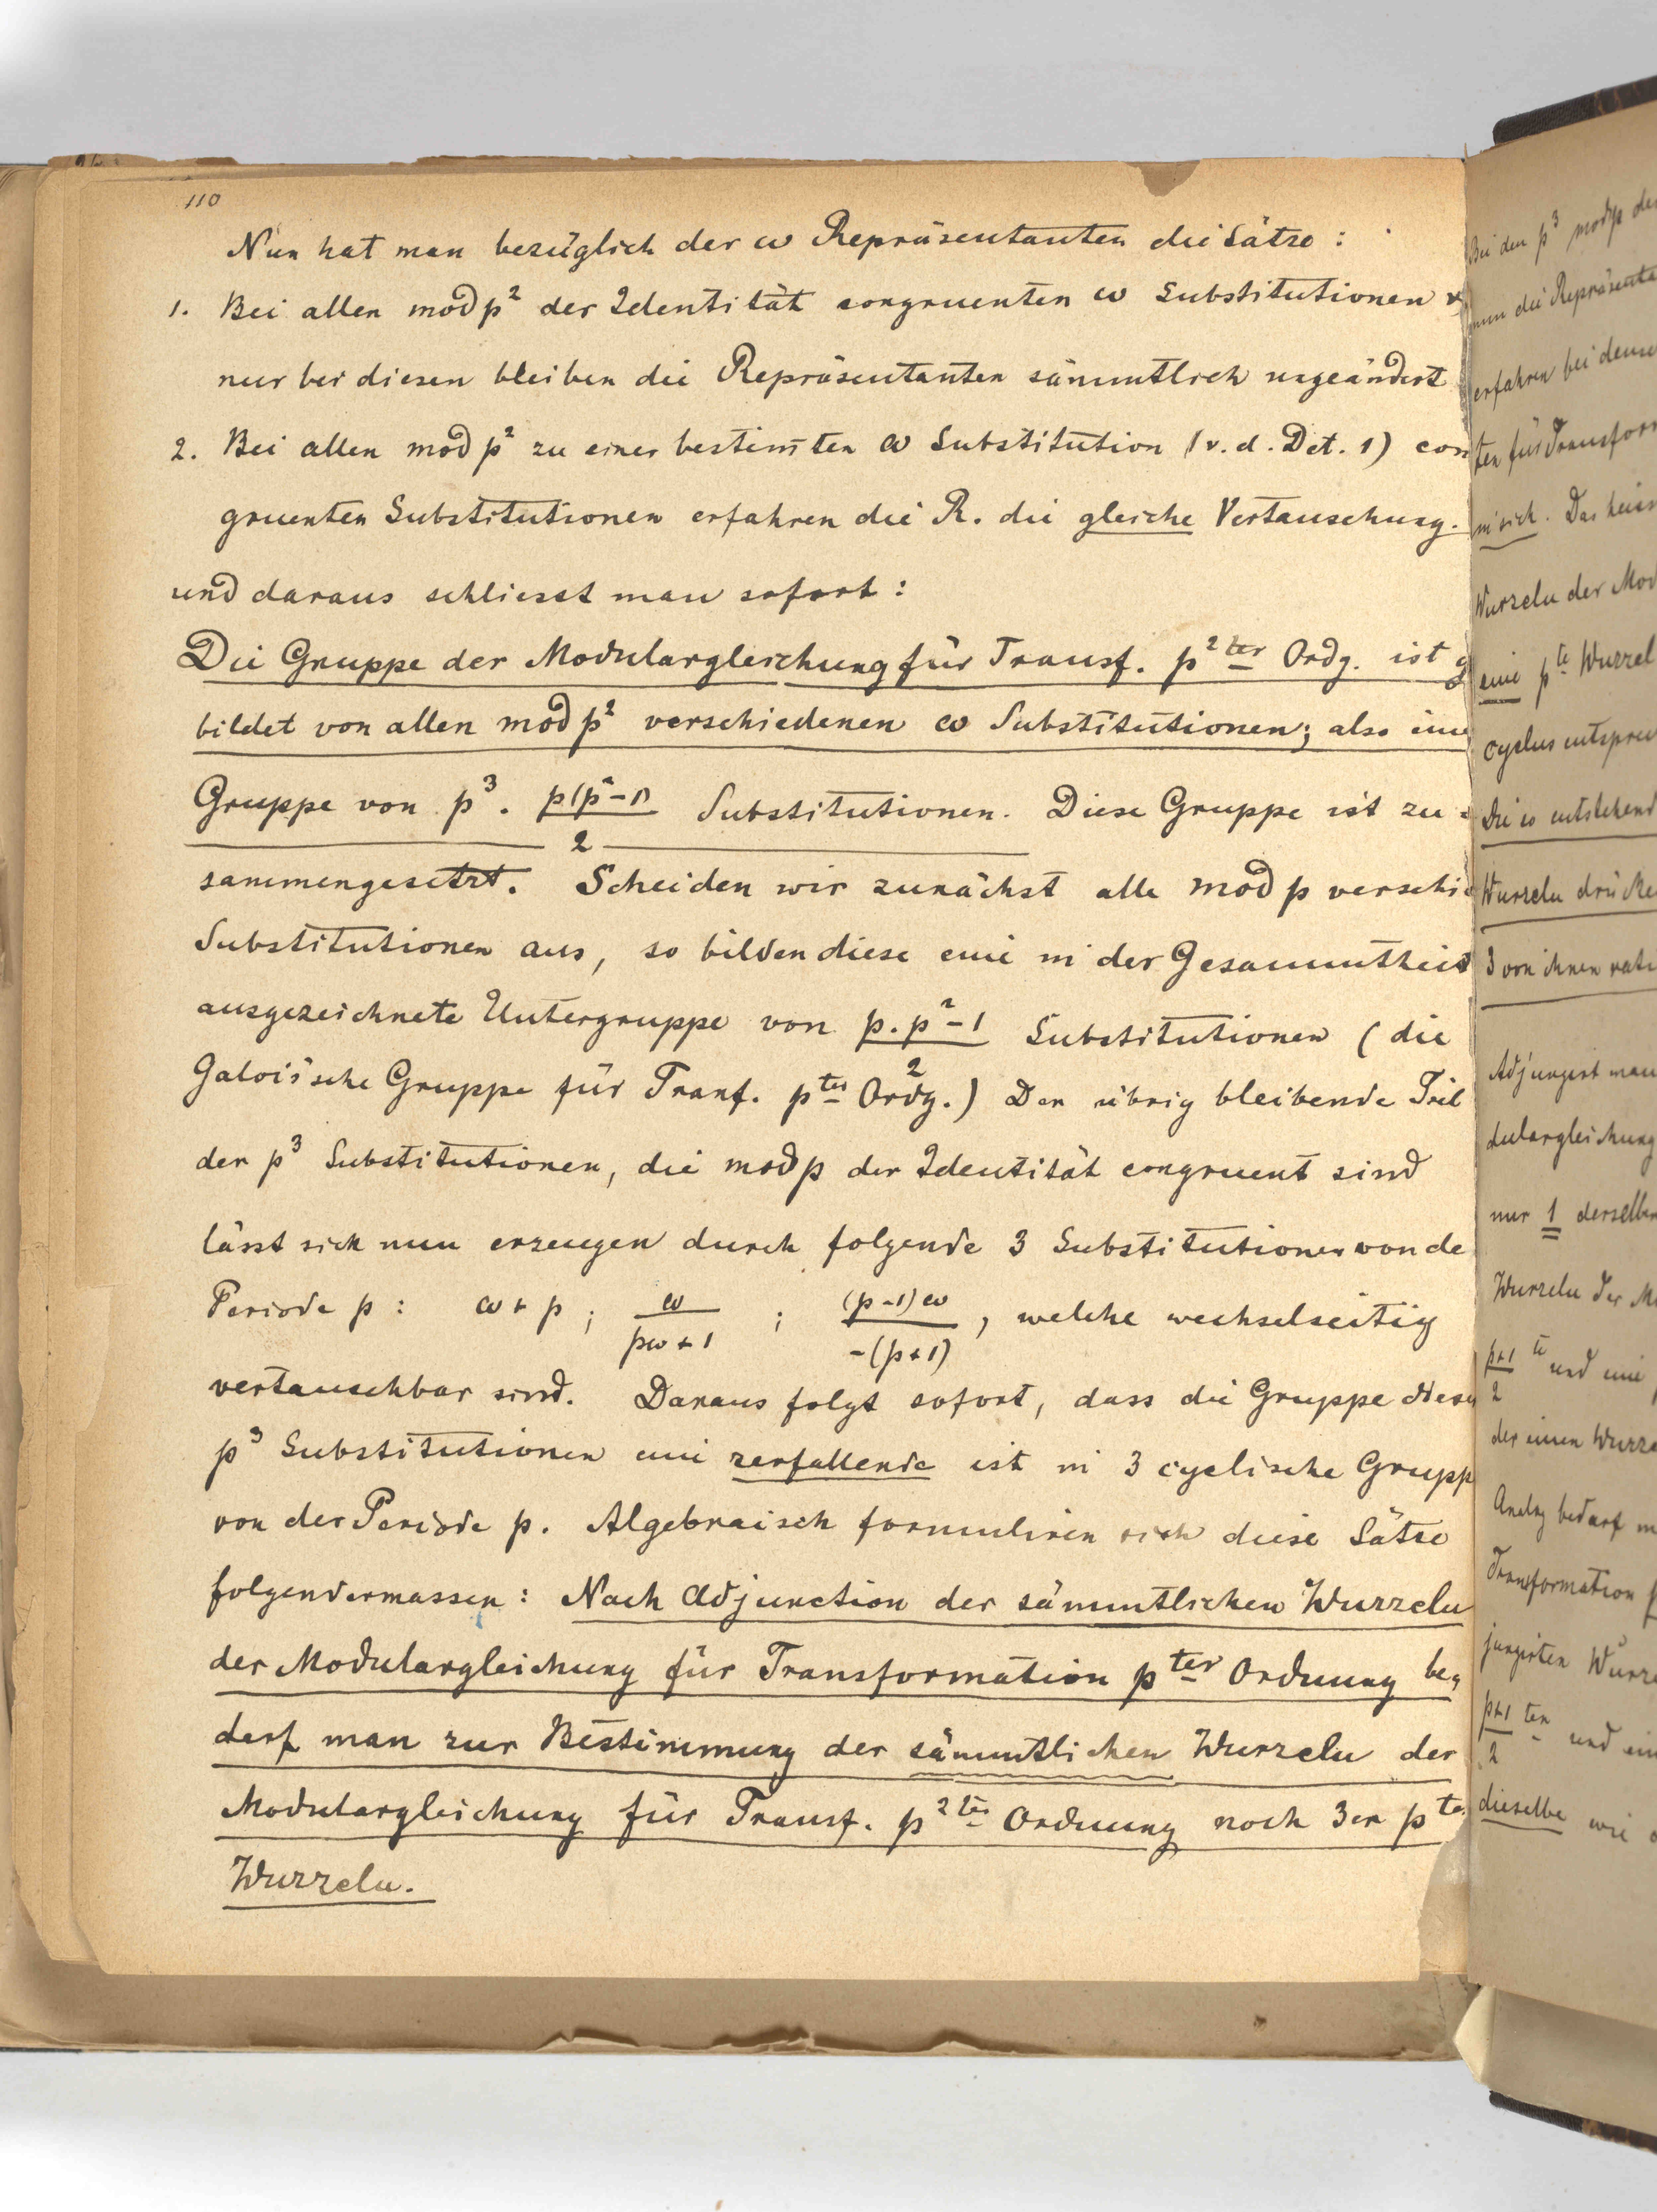 110
Nun hat man bezüglich der ω Repräsentanten die Sätze :
1. Bei allen mod p² der Identität congruenten ω Substitutionen
nur bei diesen bleiben die Repräsentanten sämmtlich ungeändert
2. Bei allen mod p² zu einer bestim̄ten ω Substitution (v. d. Det. 1) con
gruenten Substitutionen erfahren die R. die gleiche Vertauschung.
und daraus schliesst man sofort :
Die Gruppe der Modulargleichung für Transf. p² ter Ordg. ist g
bildet von allen mod p² verschiedenen ω Substitutionen; also eine
Gruppe von p³ . p(p²-1)/2 Substitutionen. Diese Gruppe ist zu
sammengesetzt. Scheiden wir zunächst alle mod p verschie
Substitutionen aus, so bilden diese eine in der Gesammtheit
ausgezeichnete Untergruppe von p.p²-1/2 Substitutionen ( die
Galois'sche Gruppe für Tranf. p ter Ordg. ) Der übrig bleibende Teil
der p³ Substitutionen, die mod p der Identität congruent sind
lässt sich nun erzeugen durch folgende 3 Substitutionen von de
Periode p : ω + p ; ω/pω + 1 ; (p-1)ω/-(p+1) , welche wechselseitig
vertauschbar sind. Daraus folgt sofort, dass die Gruppe dieser
p³ Substitutionen eine zerfallende ist in 3 cyclische Grupp
von der Periode p. Algebraisch formuliren sich diese Sätze
folgendermassen : Nach Adjunction der sämmtlichen Wurzeln
der Modulargleichung für Transformation p ter Ordnung be,
darf man zur Bestimmung der sämmtlichen Wurzeln der
Modulargleichung für Transf. p² ter Ordnung noch 3er p ter
Wurzeln.
Bei den p³ mod p de
nun die Repräsenta
erfahren bei dense
ten für Transfor
in sich. Das heis
Wurzeln der Mod
eine p te Wurzel
Cyclus entspre
Die so entstehend
Wurzeln drücke
3 von ihnen rati
Adjungirt man
dulargleichung
nur 1 derselben
Wurzeln der M
p+1/2 te und eine
der einen Wurze
Analog bedarf m
Transformation
jungirten Wurze
p+1/2 ten und ein
dieselbe wie